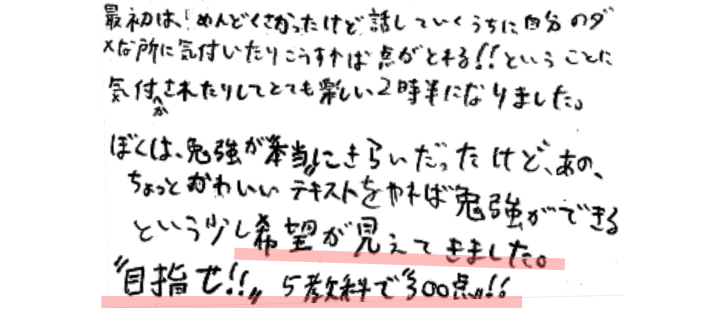 最初は、めんどくさかったけど話していくうちに自分のダ
メな所に気付いたりこうすれば点がとれる!!ということに
気付かされたりしてとても楽しい2時半になりました。
ぼくは、勉強が本当にきらいだったけど、あの、
ちょっとかわいいテキストをやれば勉強ができる
という少し希望が見えてきました。
"目指せ!!" 5教科で"300点"!!